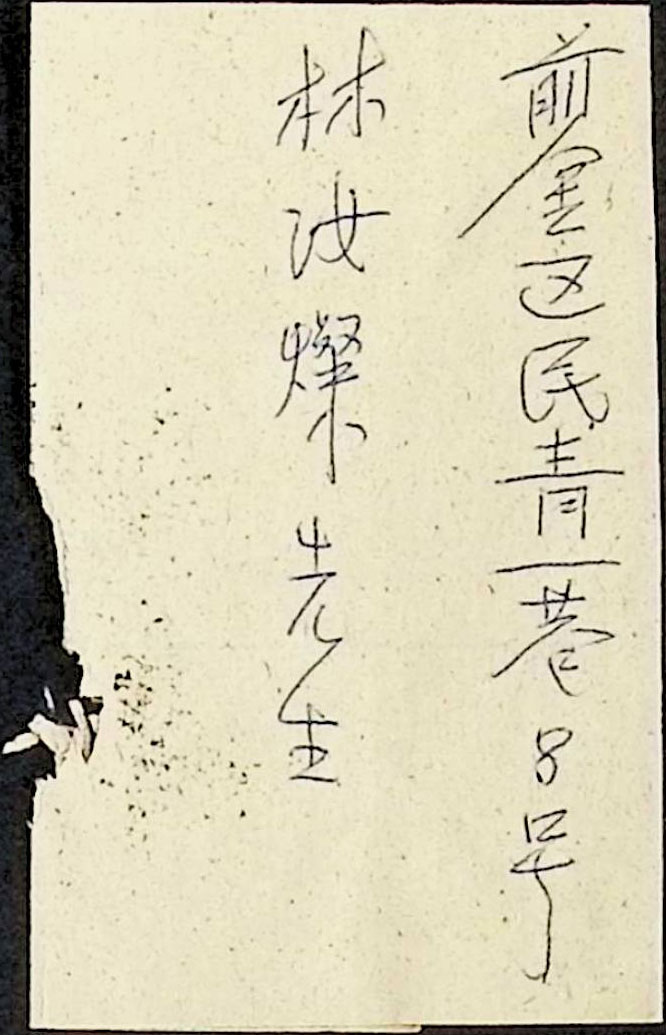 前金区民青一巷8号
林汝燦先生